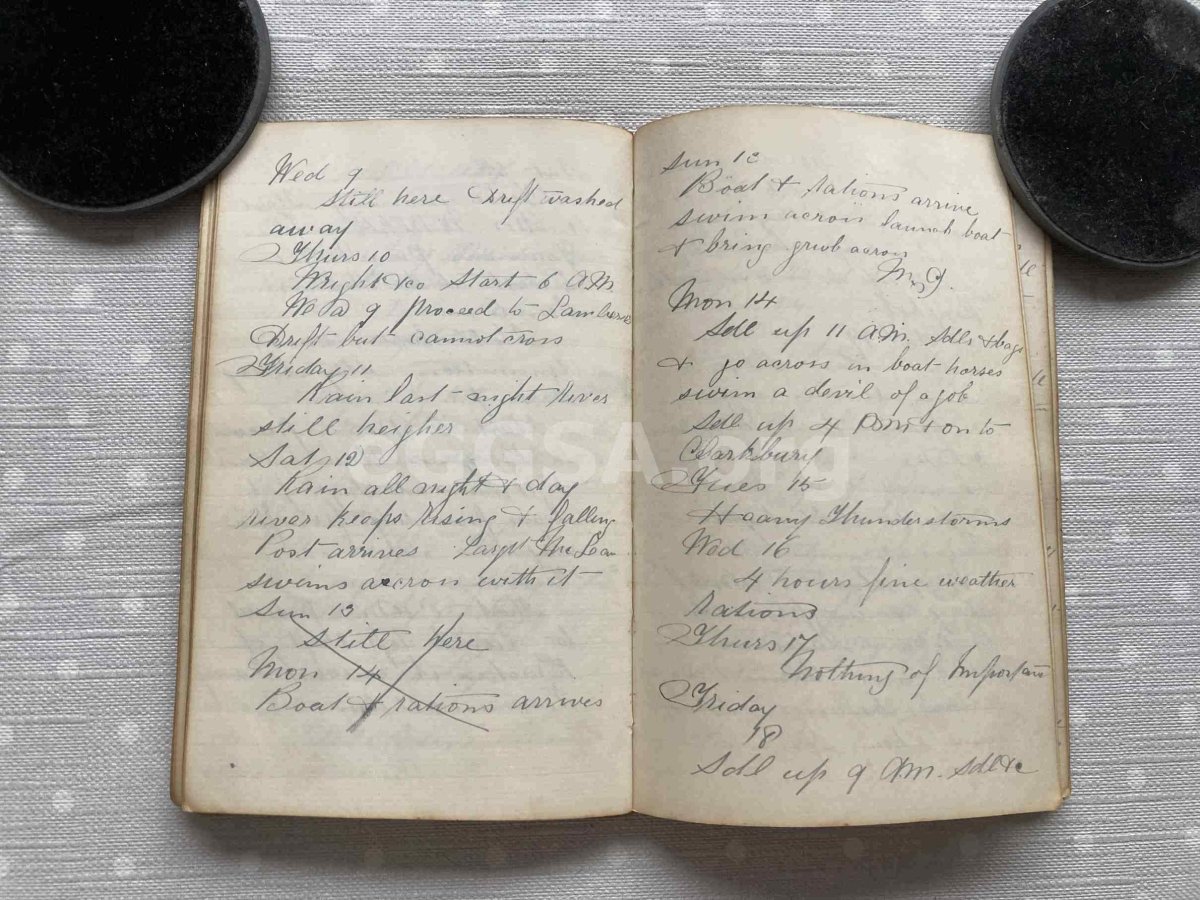 Wed 9
Still here Drift washed
away
Thurs 10
Wright & co Start 6 AM.
We a 9 proceed to Lamberts
Drift but cannot cross
Friday 11
Rain last night River
still heigher
Sat 12
Rain all night & day
river keeps rising & falling
Post arrives McLean
swims across with it
Sun 13
Still Here
Mon 14
Boat & rations arrives
Sun 13
Boat & rations arrive
swim across launch boat
& bring grub across
Mon 14
Sdl up 11 AM. Sdls & bags
& go across in boat horses
swim a devil of a job
Sdl up 4 PM & on to
Clarkbury
Tues 15
Heavy Thunderstorms
Wed 16
4 hours fine weather
rations
Thurs 17
Nothing of Importan
Friday
18
Sdl up 9 AM. Sdl &c
eGGSA.org